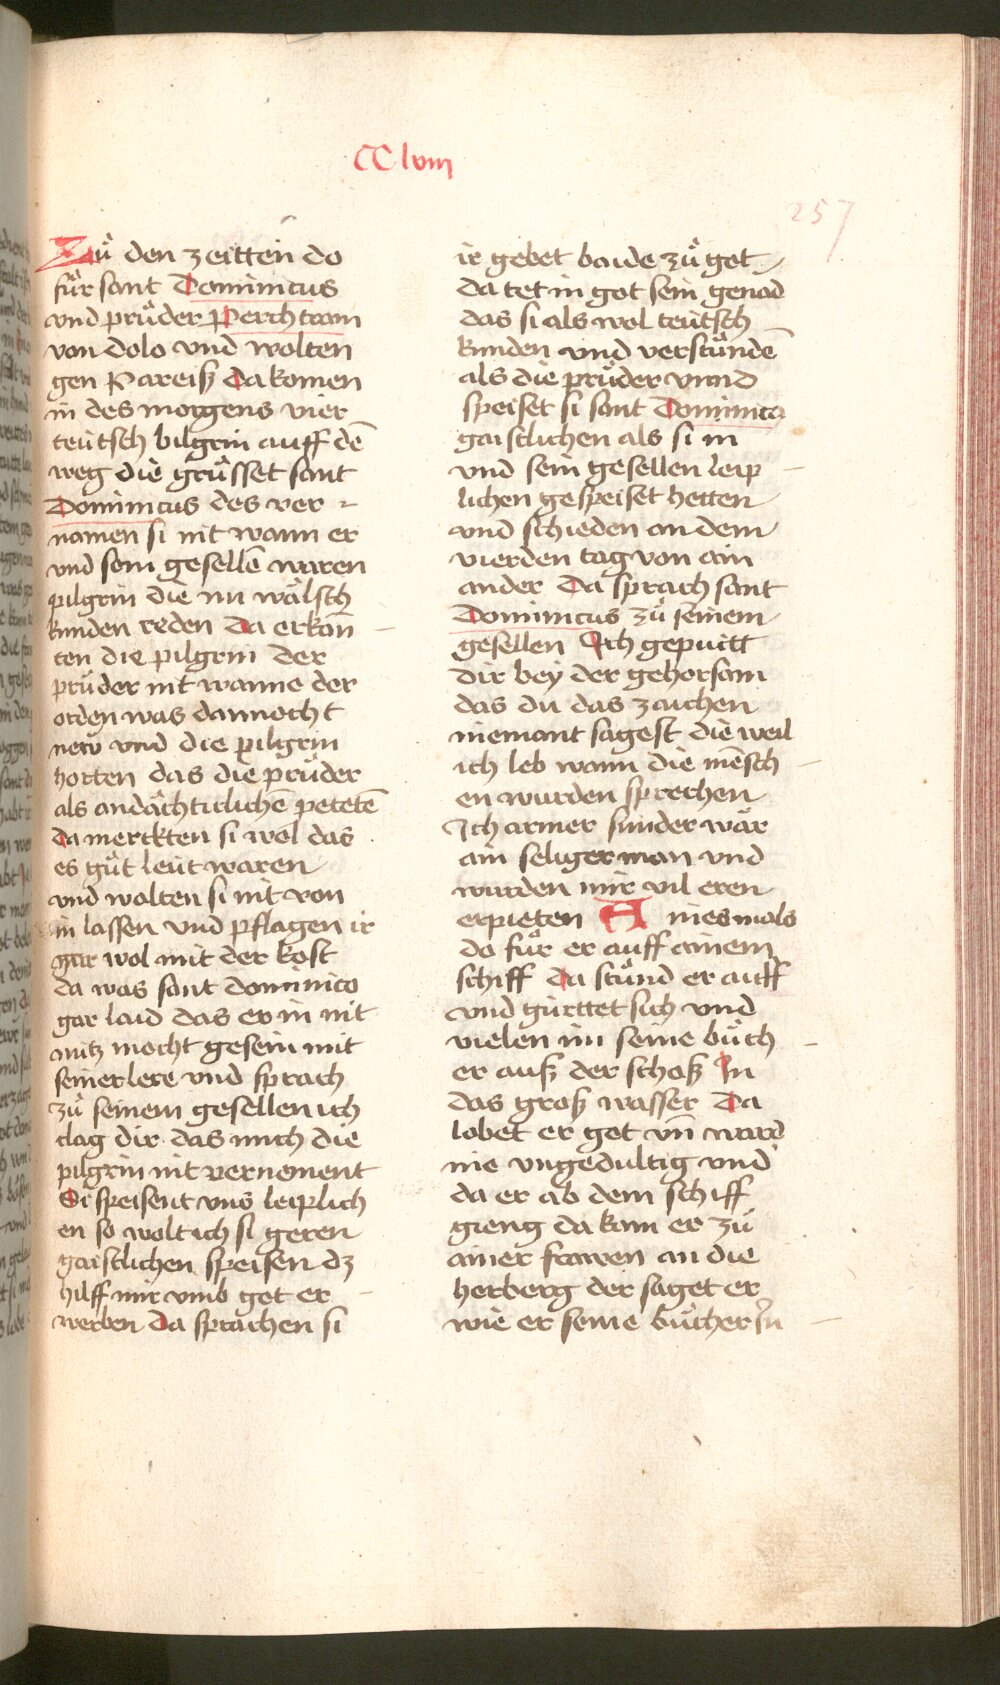 CClviii
257
Zuͦ den zeitten do
fuͦr sant Dominicus
vnd pruͦder Perchtram
von dolo vnd wolten
gen Pareiß Da komen
in des morgens vier
teütsch bilgrin auff dē
weg die gruͦsset sant
Dominicus des ver
namen si nit wann er
vnd sein gesellē waren
pilgrin die nu waͤlsch
kunden reden Da erkan̄
ten die pilgrin der
pruͦder nit wanne der
orden was dannocht
new vnd die pilgrin
horten das die pruͦder
als andaͤchticlichē petetē
da merckten si wol das
es guͦt leüt waren
vnd wolten si nit von
in lassen vnd pflagen ir
gar wol mit der kost
da was sant dominico
gar laid das er in nit
nütz mocht gesein mit
seiner lere vnd sprach
zuͦ seinem gesellen ich
clag dir das mich die
pilgrin nit vernement
Si speisent vns leiplich
en so wolt ich si geren
gaistlichen speisen dz
hilff mir vmb got er
werben Da sprachen si
ir gebet baide zuͦ got
da tet in got sein genad
das si als wol teütsch
kunden vnd verstuͦndē
als die pruͦder vnnd
speiset si sant Dominico
gaistlichen als si in
vnd sein gesellen leip
lichen gespeiset hetten
vnd schieden an dem
vierden tag von ain
ander Da sprach sant
Dominicus zuͦ seinem
gesellen Ich gepuitt
dir bey der gehorsam
das du das zaichen
niemant sagest die weil
ich leb wann die mēsch
en wurden sprechen
Ich armer sunder waͤr
ain seliger man vnd
wurden mir vil eren
erpieten Ainesmals
do fuͦr er auff ainem
schiff Da stuͦnd er auff
vnd gürttet sich vnd
vielen im seine buͦch
er auß der schoß In
das groß wasser Da
lobet er got vn̄ ward
nie vngedultig vnd
da er ab dem schiff
gieng da kam er zuͦ
ainer frawen an die
herberg der saget er
wie er seine buͦcher In